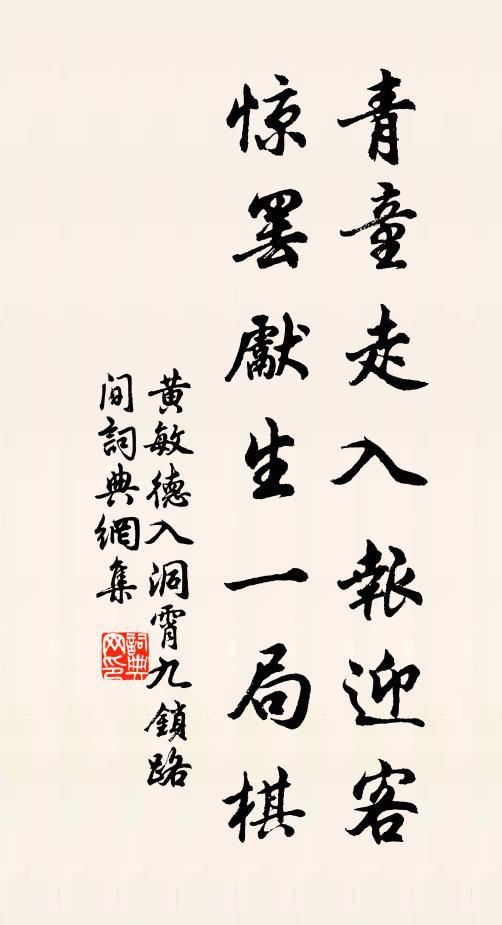 青童走入報迎客
惊罢獻生一局棋
黄敏德入洞霄九鎖路
间詞典網集
詞典网印